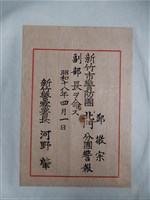 鄭敬宗
新竹市警防團北門分團警報
副部長ヲ命ス
昭和十八年四月一日
新竹警察署長 河野